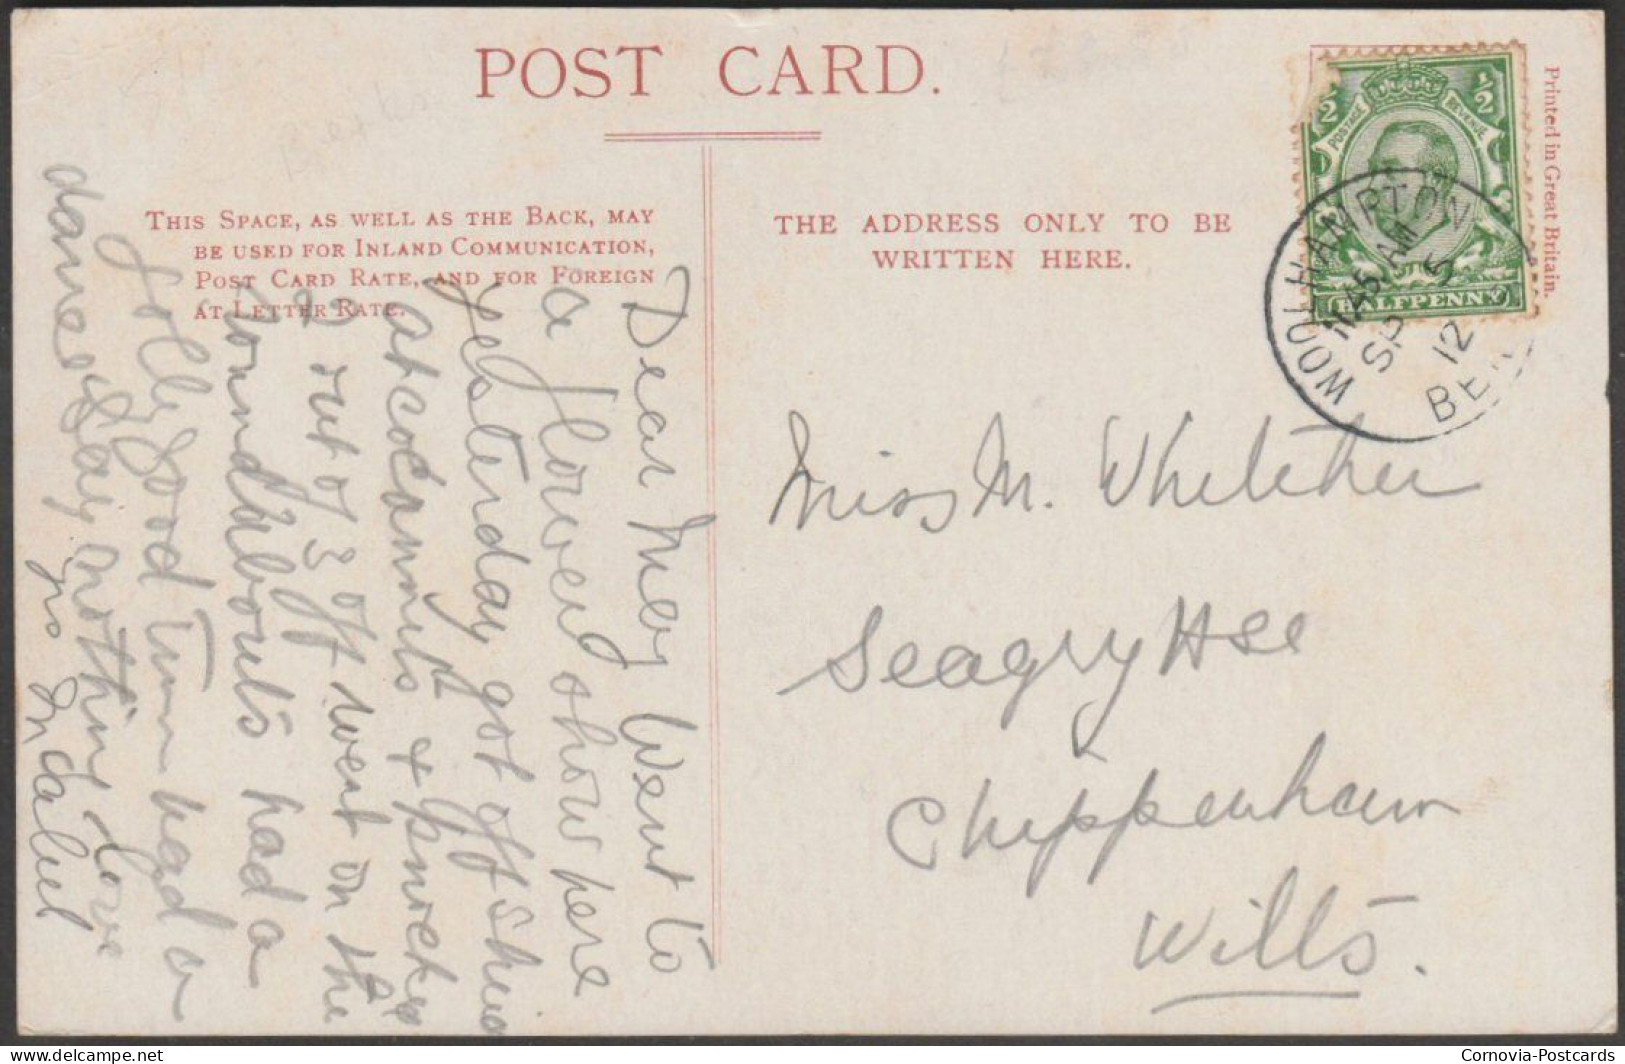 POST CARD.
THIS SPACE, AS WELL AS THE BACK, MAY
BE USED FOR INLAND COMMUNICATION,
POST CARD RATE, AND FOR FOREIGN
AT LETTER RATE.
THE ADDRESS ONLY TO BE
WRITTEN HERE.
Printed in Great Britain.
1/2 1/2
POSTAGE REVENUE
HALFPENNY
WOOLHAMPTON
11.45 AM
SP 5
12
BE
Dear May Went to
a flower show here
yesterday got off
at cocoanuts & knocked
2 out of 3 off went on the
roundabouts had a
jolly good time had a
dance & say nothing love
yrs Mabel
Miss M. Whitcher
Seagry Hse
Chippenham
Wilts.
Cornovia-Postcards